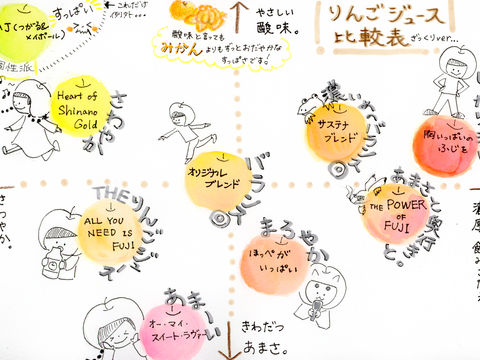 すっぱい
これだけ
やさしい
酸味。
酸味と言っても
みかんよりもずっとおだやかな
すっぱさです!
りんごジュース
比較表 ざっくりver...
個性派
Heart of
Shinano
Gold
さわやか
濃いめでバランス◎
サステナ
ブレンド
胸いっぱいの
ふじを
オリジナル
ブレンド
バランス◎
THEりんごジュース
ALL YOU
NEED IS
FUJI
あまさと奥行き。
THE POWER
OF
FUJI
さっぱり
さわやか。
濃厚
まろやか
ほっぺが
いっぱい
あまーい
オー・マイ・
スイート・ラヴァー
きわだつ
あまさ。